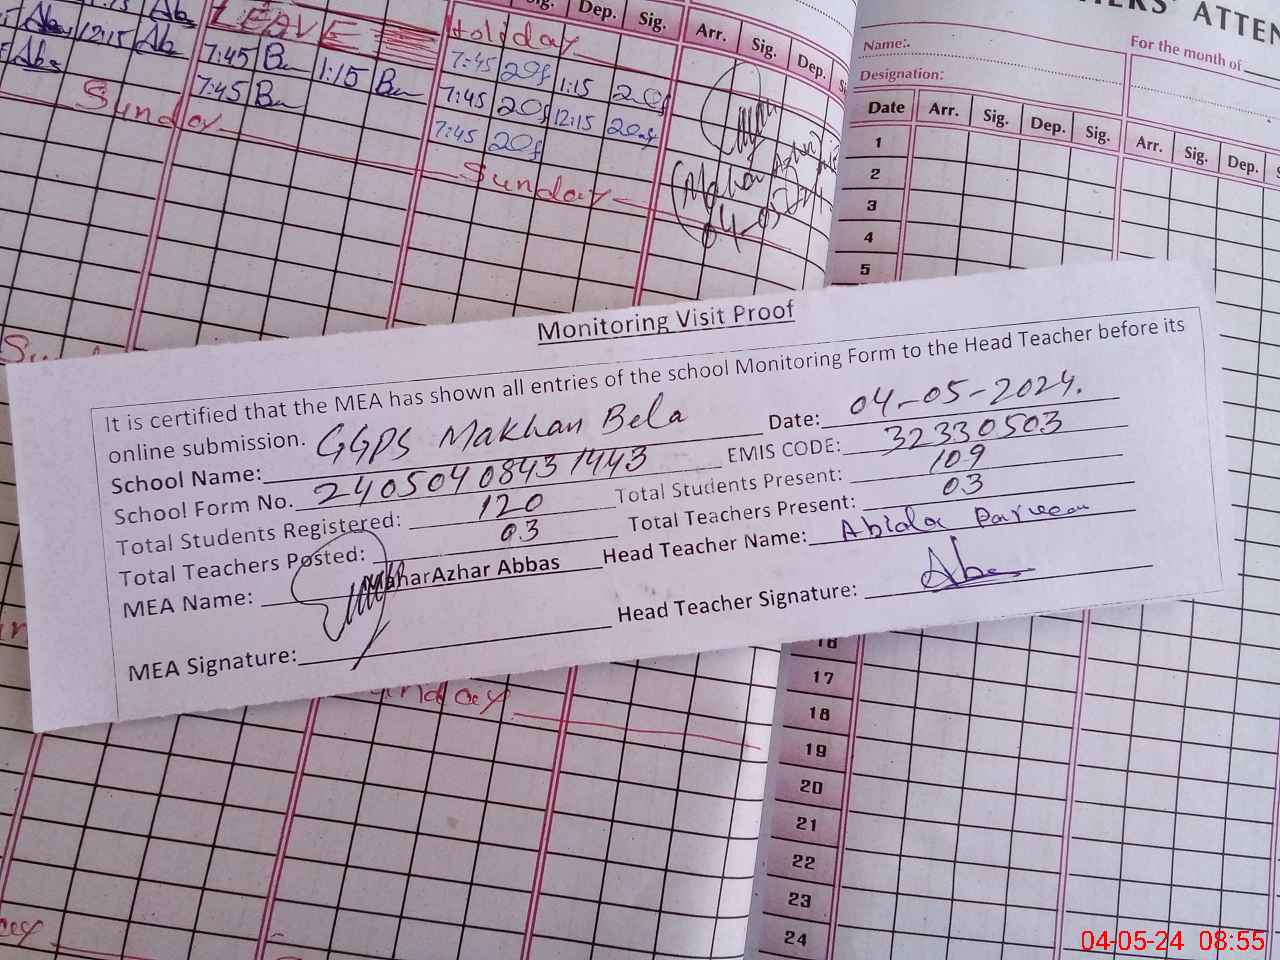 LEAVE
Holiday
Sig. Dep. Sig. Arr. Sig. Dep.
12:15 Ab
7:45 1:15
7:45
7:45 1:15
7:45 12:15
7:45
Sunday
Sunday
04-05-24
ATTEN
Name:
For the month of
Designation:
Date Arr. Sig. Dep. Sig. Arr. Sig. Dep.
1
2
3
4
5
Monitoring Visit Proof
It is certified that the MEA has shown all entries of the school Monitoring Form to the Head Teacher before its
online submission.
School Name: GGPS Makhan Bela Date: 04-05-2024.
School Form No. 24050408431443 EMIS CODE: 32330503
Total Students Registered: 120 Total Students Present: 109
Total Teachers Posted: 03 Total Teachers Present: 03
MEA Name: MaharAzhar Abbas Head Teacher Name: Abida Parveen
MEA Signature: Head Teacher Signature:
16
17
18
19
20
21
22
23
24
04-05-24 08:55